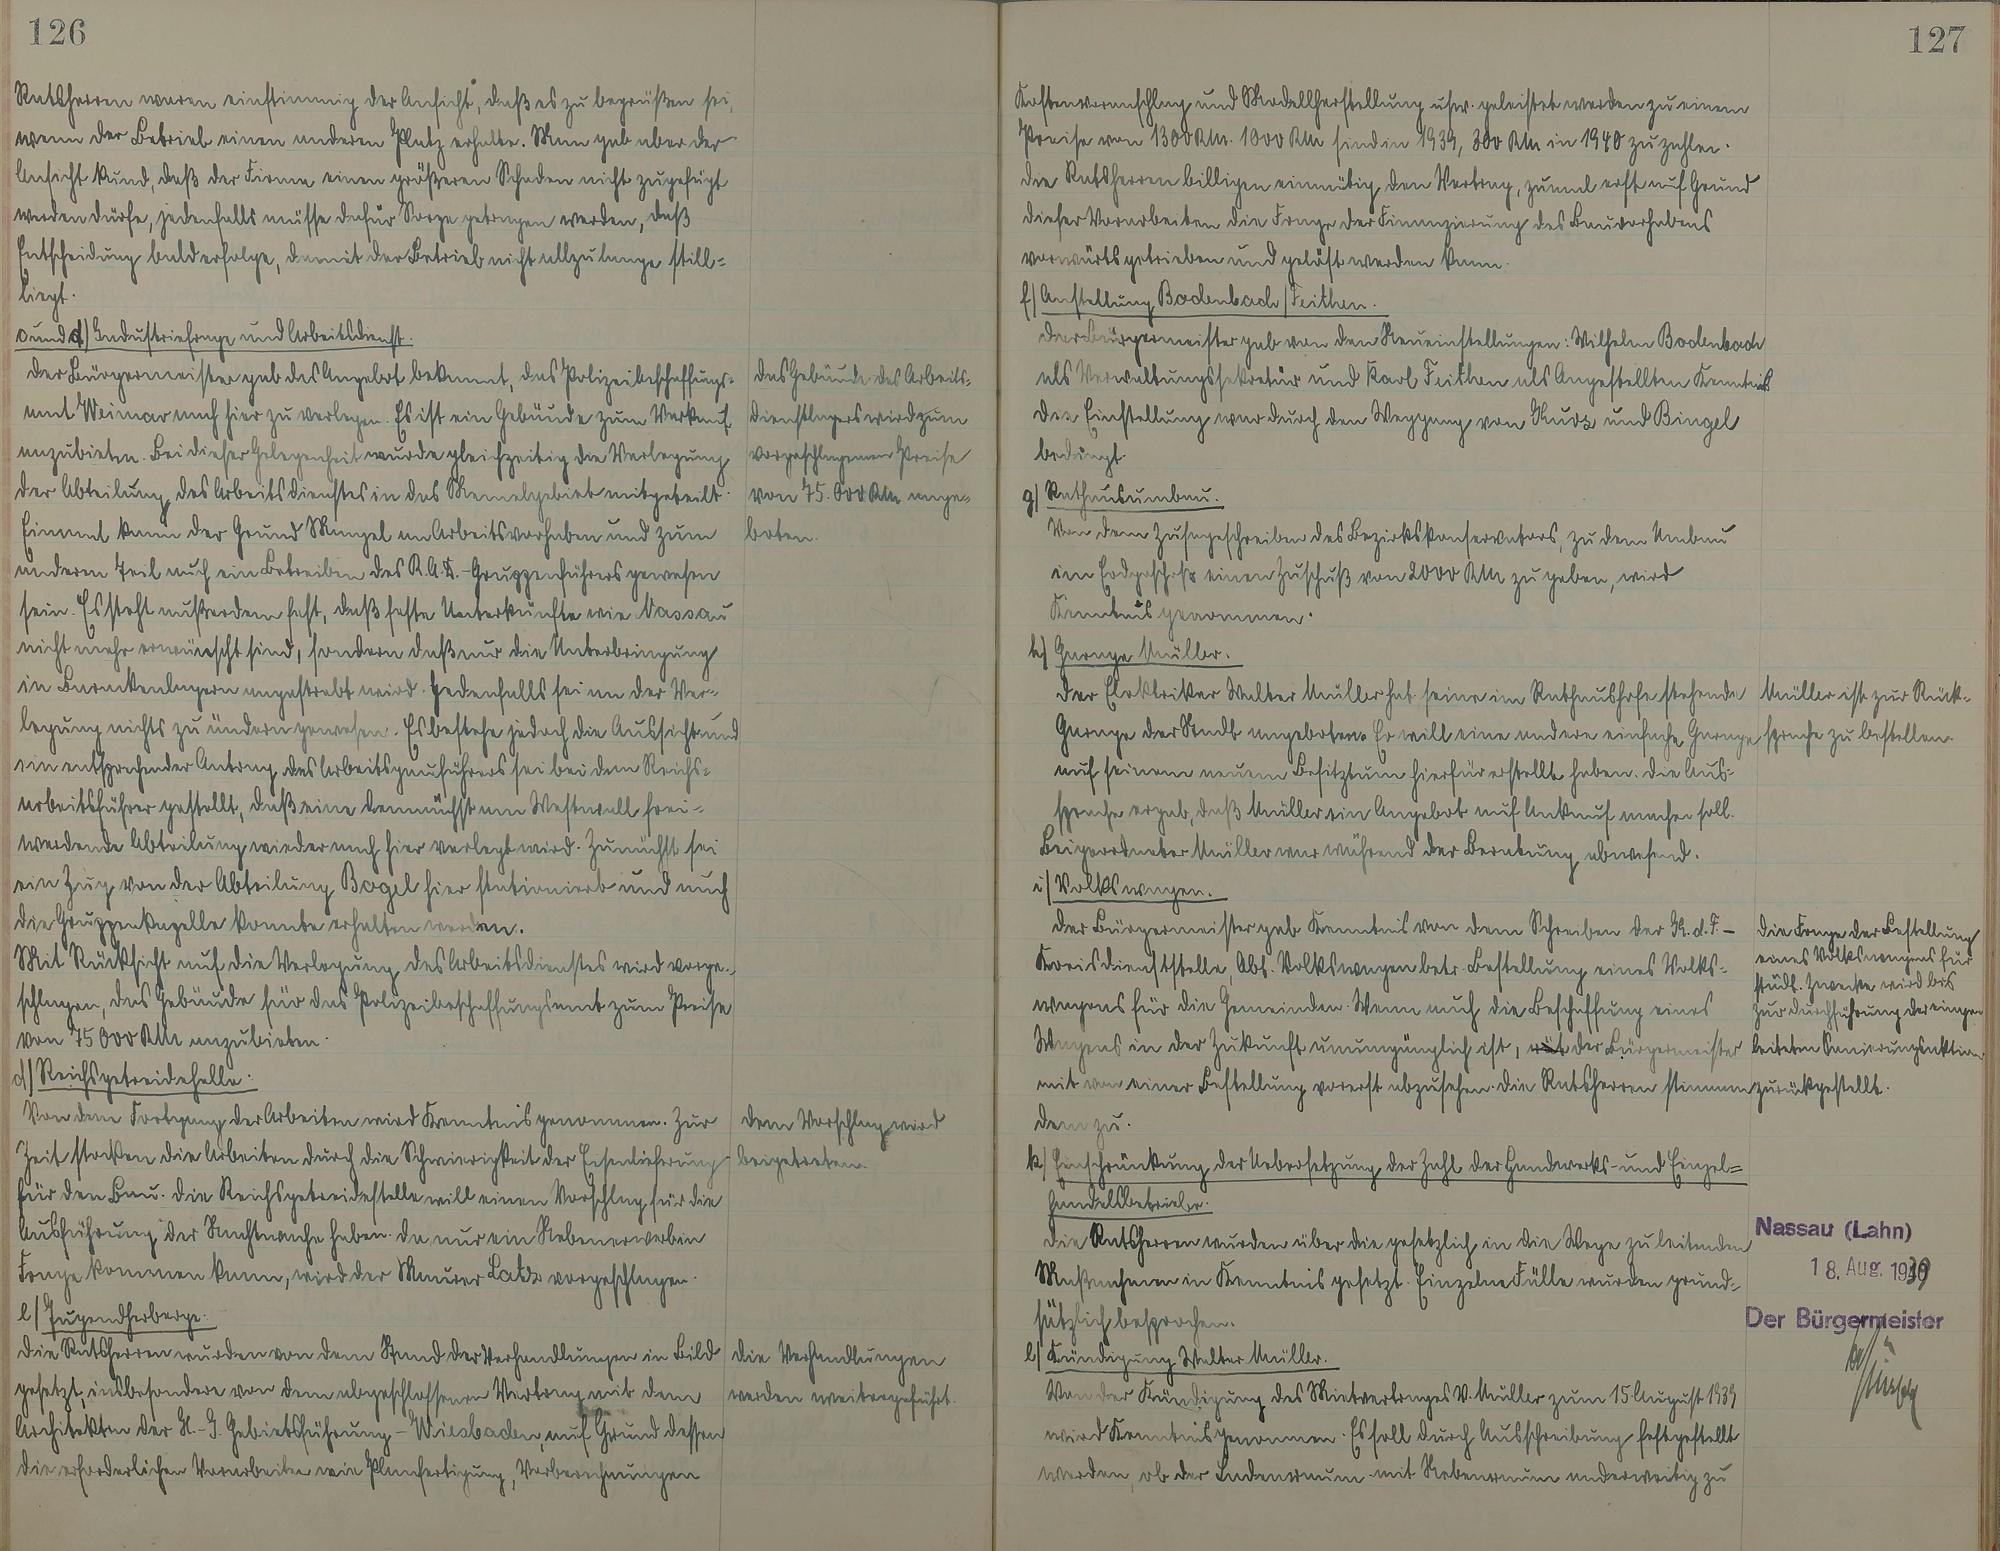 126
Ratsherren waren einstimmig der Ansicht, daß es zu begrüßen sei,
wenn der Betrieb einen anderen Platz erhalte. Man gab aber der
Ansicht kund, daß der Firma einen größeren Schaden nicht zugefügt
werden dürfe, jedenfalls müsse dafür Sorge getragen werden, daß
Entscheidung bald erfolge, damit der Betrieb nicht allzulange still-
liegt.
c und d) Industriefrage und Arbeitsdienst.
Der Bürgermeister gab das Angebot bekannt, das Polizeibeschaffungs-
amt Weimar nach hier zu verlegen. Es ist ein Gebäude zum Verkauf
anzubieten. Bei dieser Gelegenheit wurde gleichzeitig die Verlegung
der Abteilung des Arbeitsdienstes in das Memelgebiet mitgeteilt.
Einmal kann der Grund Mangel an Arbeitsvorhaben und zum
anderen Teil auch ein Betreiben des R.A.D.-Gruppenführers gewesen
sein. Es steht außerdem fest, daß feste Unterkünfte wie Nassau
nicht mehr erwünscht sind, sondern daß nur die Unterbringung
in Barackenlagern angestrebt wird. Jedenfalls sei an der Ver-
legung nichts zu ändern gewesen. Es bestehe jedoch die Aussicht und
ein entsprechender Antrag des Arbeitsgauführers sei bei dem Reichs-
arbeitsführer gestellt, daß eine demnächst am Westwall frei-
werdende Abteilung wieder nach hier verlegt wird. Zunächst sei
ein Zug von der Abteilung Bogel hier stationiert und auch
die Gruppenkapelle konnte erhalten werden.
Mit Rücksicht auf die Verlegung des Arbeitsdienstes wird vorge-
schlagen, das Gebäude für das Polizeibeschaffungsamt zum Preise
von 75 000 RM anzubieten.
Das Gebäude des Arbeits-
dienstlagers wird zum
vorgeschlagenen Preise
von 75.000 RM ange-
boten.
d) Reichsgetreidehalle.
Von dem Fortgang der Arbeiten wird Kenntnis genommen. Zur
Zeit stocken die Arbeiten durch die Schwierigkeit der Eisenlieferung
für den Bau. Die Reichsgetreidestelle will einen Vorschlag für die
Ausführung der Nachtwache haben. Da nur ein Nebenerwerb in
Frage kommen kann, wird der Maurer Lotz vorgeschlagen.
Dem Vorschlag wird
beigetreten.
e) Jugendherberge.
Die Ratsherren wurden von dem Stand der Verhandlungen in Bild
gesetzt, insbesondere von dem abgeschlossenen Vertrag mit dem
Architekten der H.-J. Gebietsführung - Wiesbaden, auf Grund dessen
die erforderlichen Vorarbeiten wie Planfertigung, Vorberechnungen
Die Verhandlungen
werden weitergeführt.
127
Kostenvoranschlag und Modellherstellung usw. geleistet werden zu einem
Preise von 1300 RM. 1000 RM sind in 1939, 300 RM in 1940 zu zahlen.
Die Ratsherren billigen einmütig den Vertrag, zumal erst auf Grund
dieser Vorarbeiten die Frage der Finanzierung des Bauvorhabens
vorwärtsgetrieben und gelöst werden kann.
f) Anstellung Bodenbach/Feithen.
Der Bürgermeister gab von den Neueinstellungen: Wilhelm Bodenbach
als Verwaltungssekretär und Karl Feithen als Angestellten Kenntnis
Die Einstellung war durch den Weggang von Kurz und Bingel
bedingt.
g) Rathausumbau.
Von dem Zusageschreiben des Bezirkskonservators, zu dem Umbau
im Erdgeschoß einen Zuschuß von 2000 RM zu geben, wird
Kenntnis genommen.
h) Garage Müller.
Der Elektriker Walter Müller hat seine im Rathaushofe stehende
Garage der Stadt angeboten. Er will eine andere einfache Garage
auf seinem neuem Besitztum hierfür erstellt haben. Die Aus-
sprache ergab, daß Müller ein Angebot auf Ankauf machen soll.
Beigeordneter Müller war während der Beratung abwesend.
Müller ist zur Rück-
sprache zu bestellen.
i) Volkswagen.
Der Bürgermeister gab Kenntnis von dem Schreiben der K.d.F. -
Kreisdienststelle, Abt. Volkswagen betr. Bestellung eines Volks-
wagens für die Gemeinden. Wenn auch die Beschaffung eines
Wagens in der Zukunft unumgänglich ist, rät der Bürgermeister
mit von einer Bestellung vorerst abzusehen. Die Ratsherren stimmen
dem zu.
Die Frage der Bestellung
eines Volkswagens für
städt. Zwecke wird bis
zur Durchführung der einge-
leiteten Sanierungsaktion
zurückgestellt.
k) Einschränkung der Uebersetzung der Zahl der Handwerks- und Einzel-
handelsbetriebe.
Die Ratsherren wurden über die gesetzlich in die Wege zu leitenden
Maßnahmen in Kenntnis gesetzt. Einzelne Fälle wurden grund-
sätzlich besprochen.
Nassau (Lahn)
18. Aug. 1939
Der Bürgermeister
l) Kündigung Walter Müller.
Von der Kündigung des Mietvertrages W. Müller zum 15 August 1939
wird Kenntnis genommen. Es soll durch Ausschreibung festgestellt
werden, ob der Ladenraum mit Nebenraum anderweitig zu